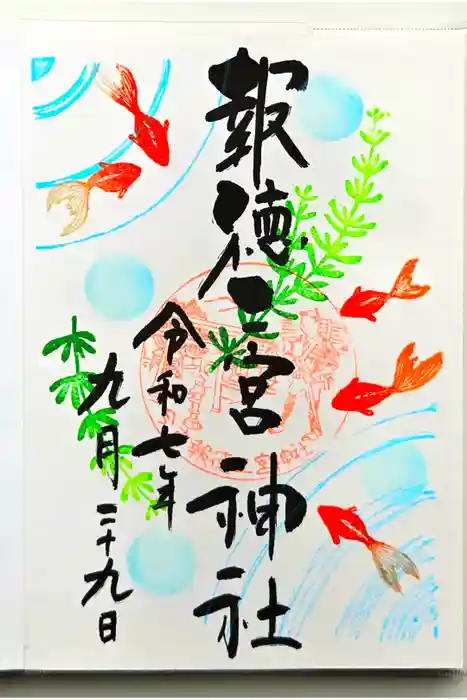 報徳二宮神社
令和七年
九月二十九日